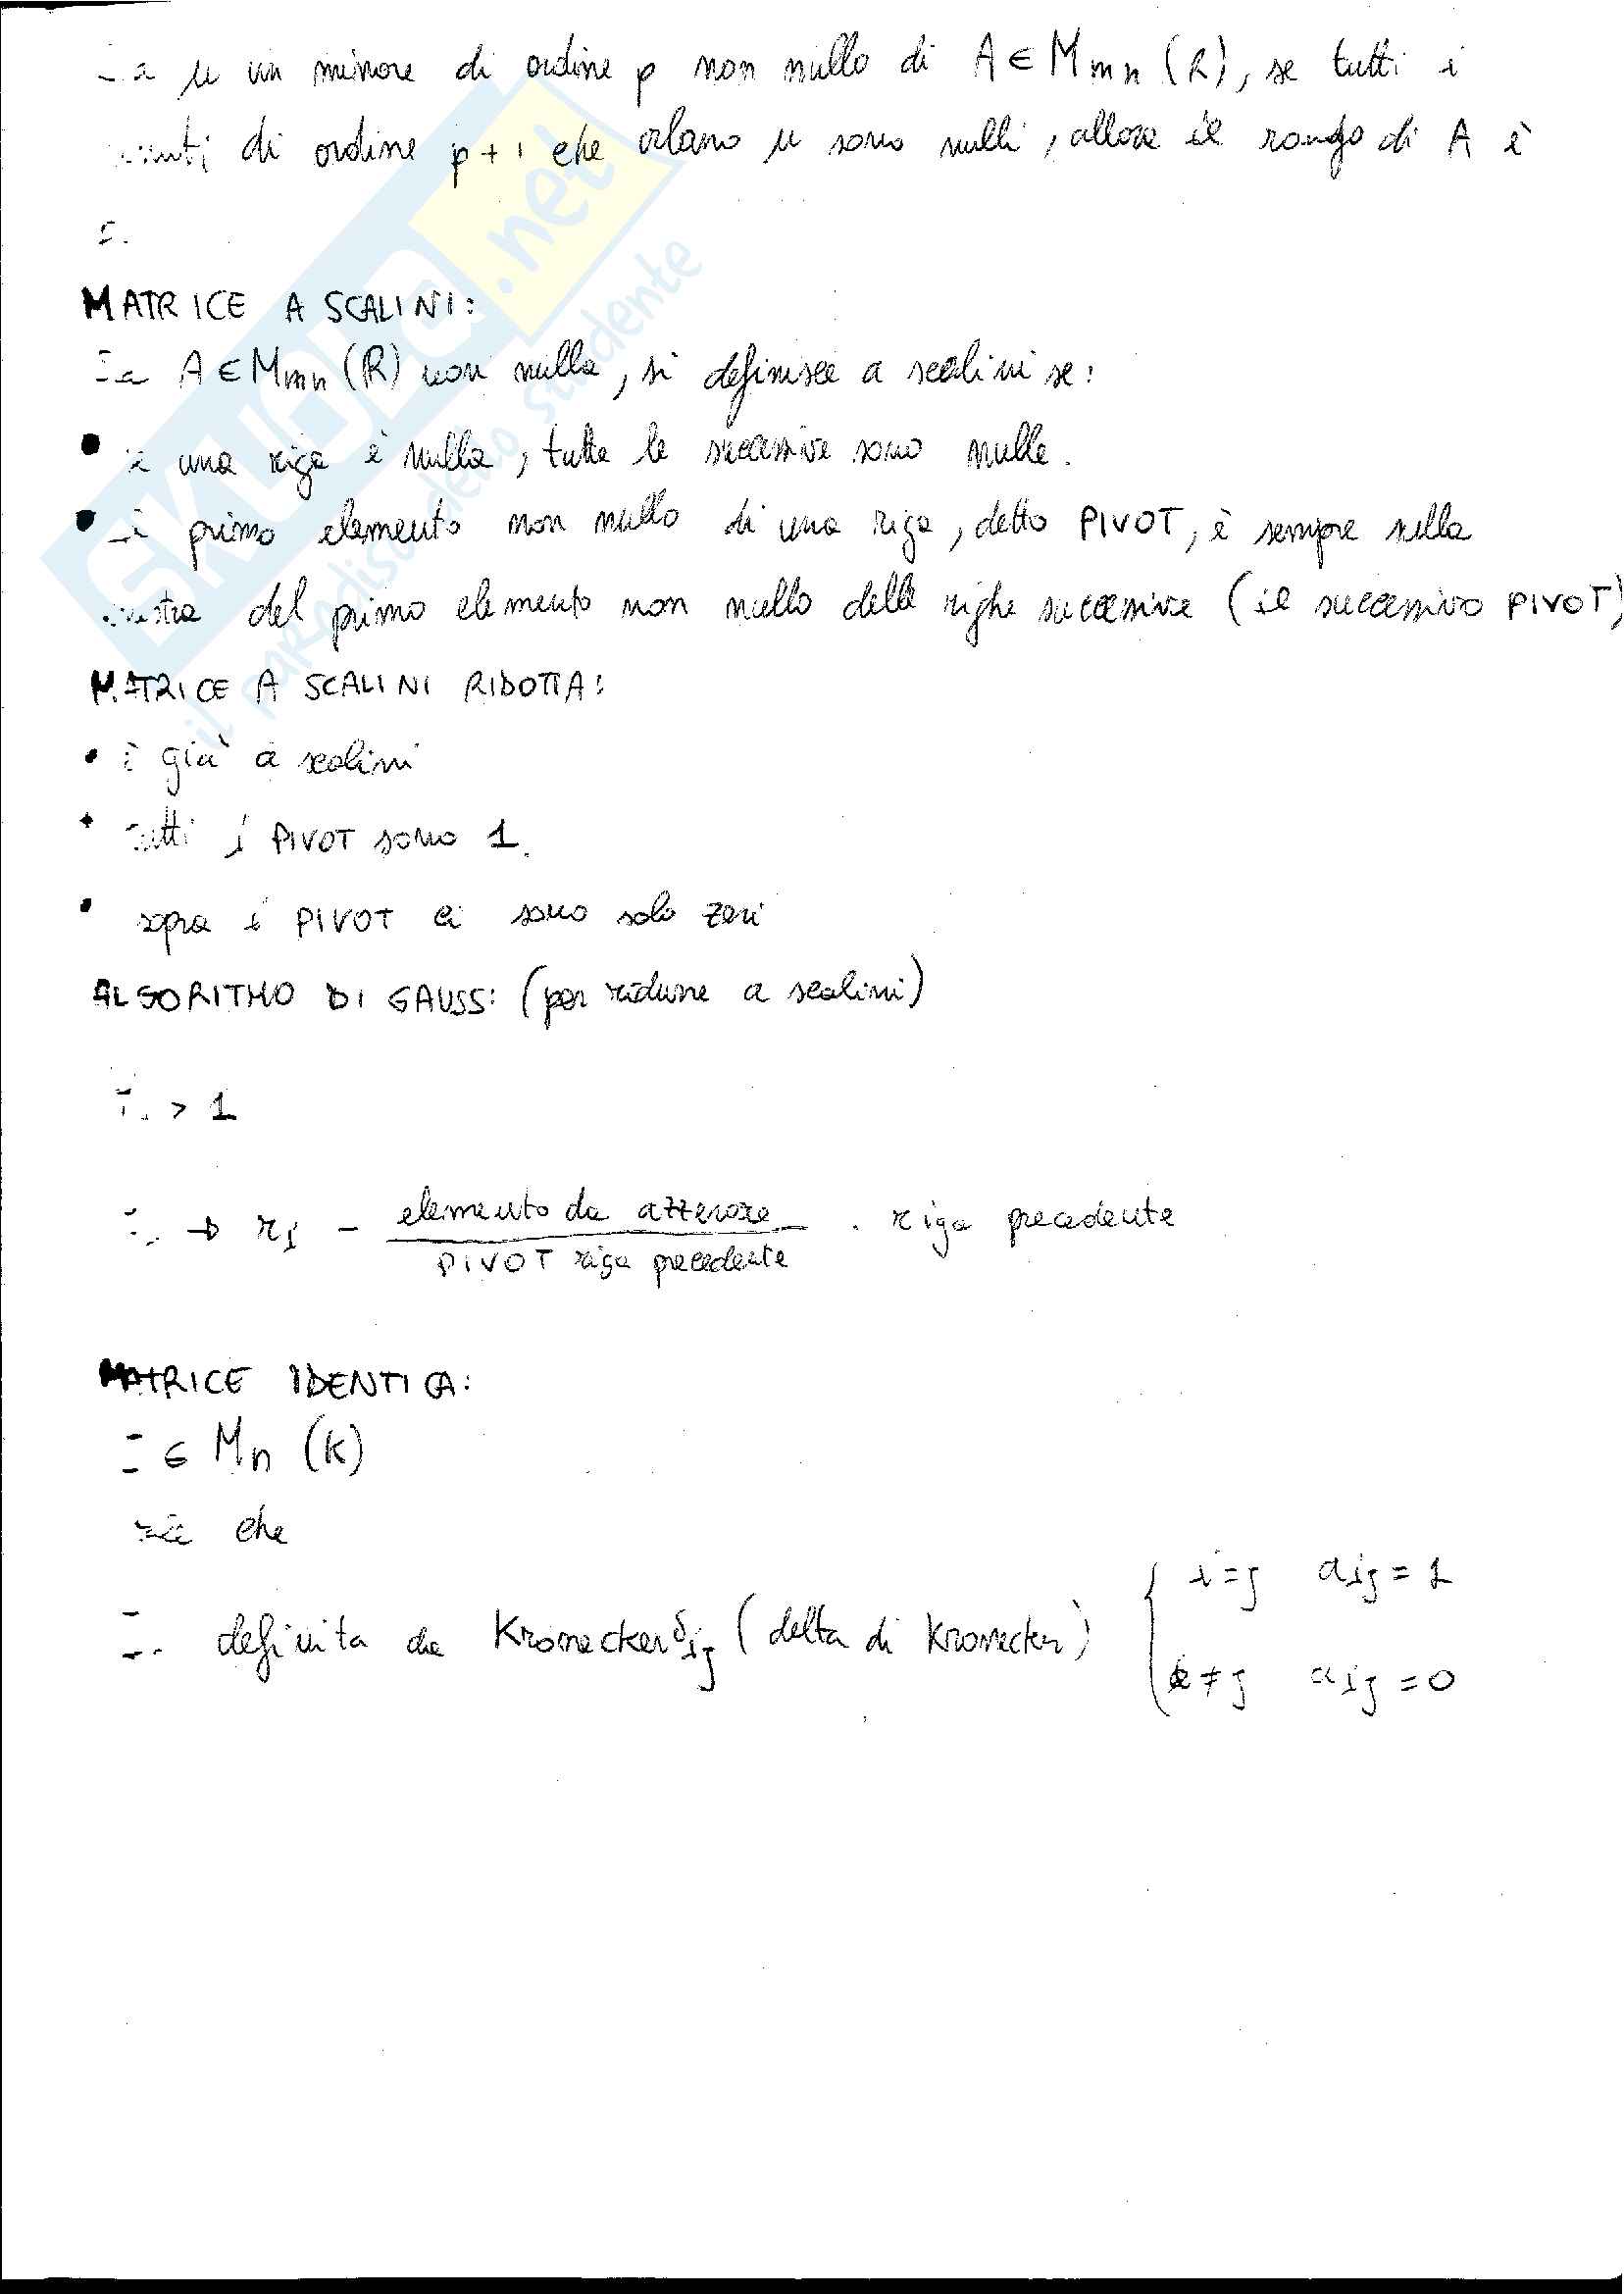 μ un minore di ordine p non nullo di A ∈ Mmn (R), se tutti i
di ordine p + 1 che orlano μ sono nulli, allora il rango di A è
MATRICE A SCALINI:
A ∈ Mmn (R) non nulla, si definisce a scalini se:
• una riga è nulla, tutte le successive sono nulle.
• primo elemento non nullo di una riga, detto PIVOT, è sempre sulla
del primo elemento non nullo delle righe successive (il successivo PIVOT)
MATRICE A SCALINI RIDOTTA:
• è già a scalini
• tutti i PIVOT sono 1.
• sopra i PIVOT ci sono solo zeri
ALGORITMO DI GAUSS: (per ridurre a scalini)
> 1
→ ri - elemento da azzerare / PIVOT riga precedente · riga precedente
MATRICE IDENTICA:
∈ Mn (K)
che
definita da Kronecker δij (delta di Kronecker) { i=j aij = 1
≠ j aij = 0
SKUOLA.net
il paradiso dello studente